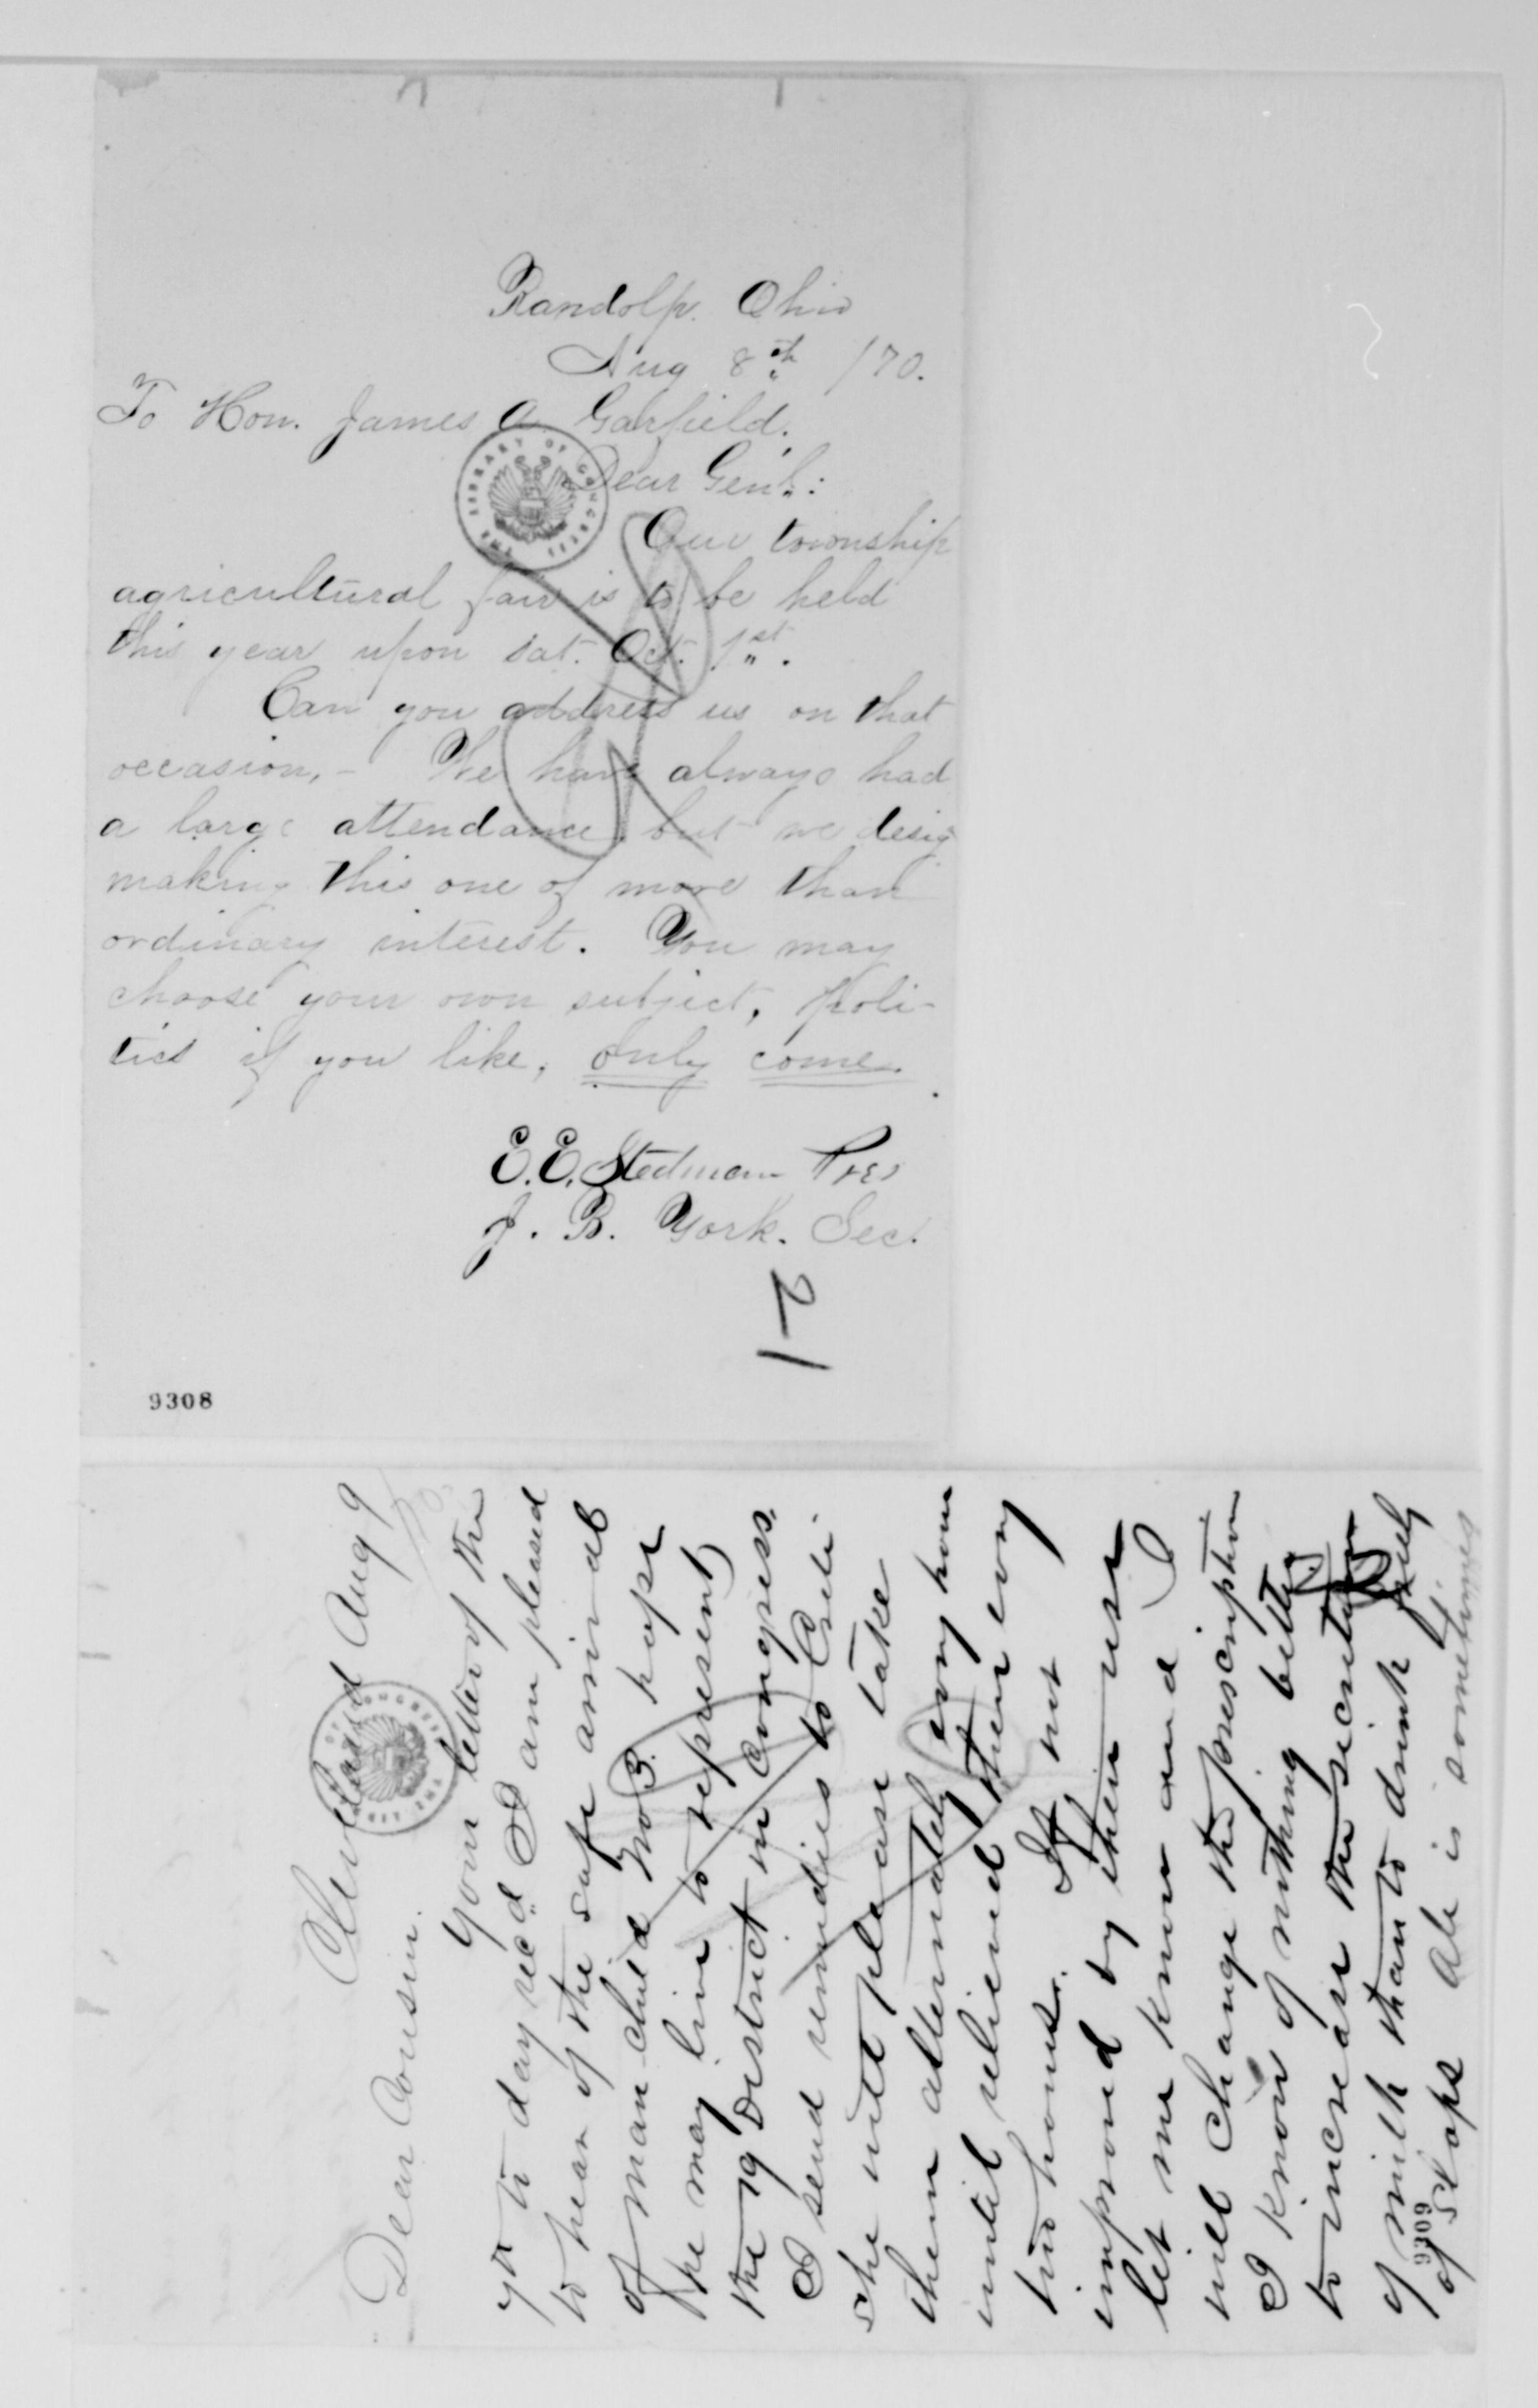 Randolph. Ohio
Aug 8th /70.
To Hon. James A. Garfield.
Dear Genl.:
Our township
agricultural fair is to be held
this year upon Sat. Oct. 1st.
Can you address us on that
occasion, - We have always had
a large attendance, but we desig
making this one of more than
ordinary interest. You may
choose your own subject, poli-
tics if you like, only come.
E. E. Stedman Pres
J. B. York. Sec.
9308
THE LIBRARY OF CONGRESS
Cleveland Aug 9
Dear Cousin.
Your letter of the
7th to day recd I am pleased
to hear of the safe arrival
of man-child No 3. hope
he may live to represent
the 19 District in Congress.
I send remedies to
she will please take
them alternately every hour
until relieved then every
two hours. If not
improved by their use
let me know and I
will change the prescription
I know of nothing better
to increase the secretion
of milk than to drink freely
of Slops Ale is sometimes
9309